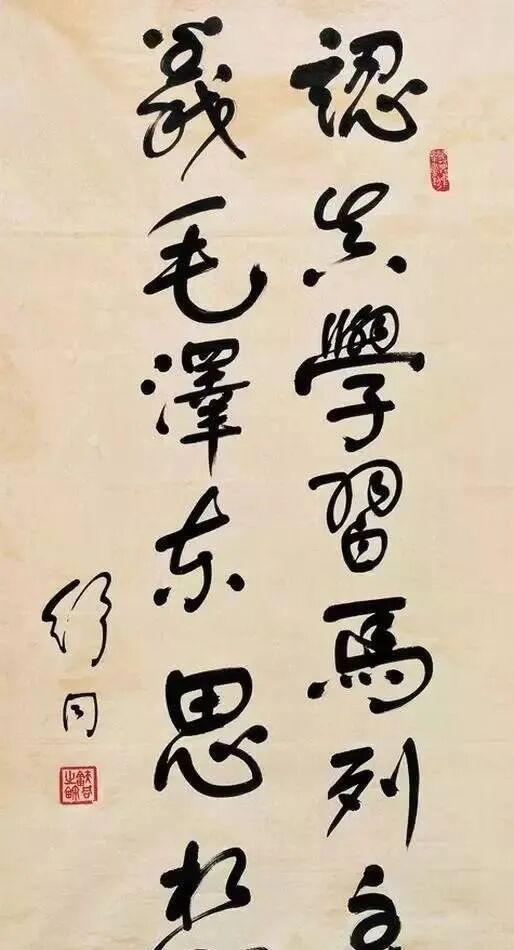 認真學習馬列主
義毛澤東思想
舒同